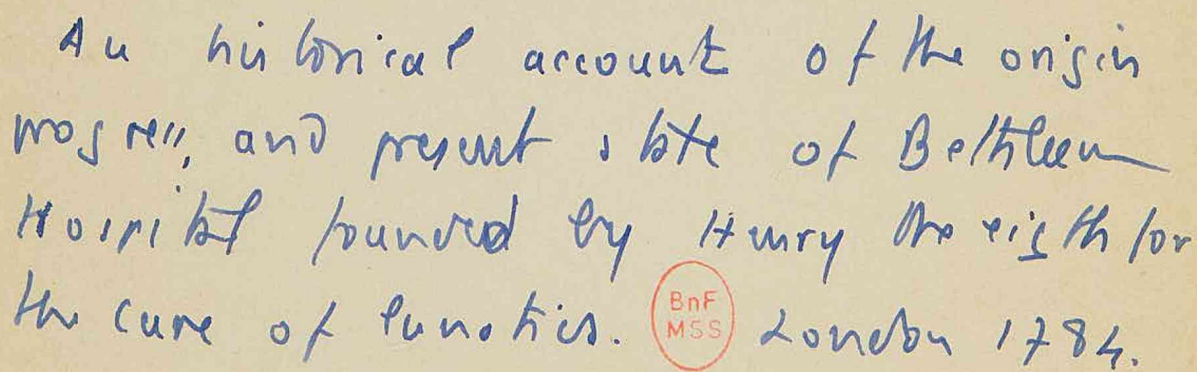 An historical account of the origin
progress, and present state of Bethleem
Hospital founded by Henry the eigth for
the cure of lunatics. BnF MSS London 1784.